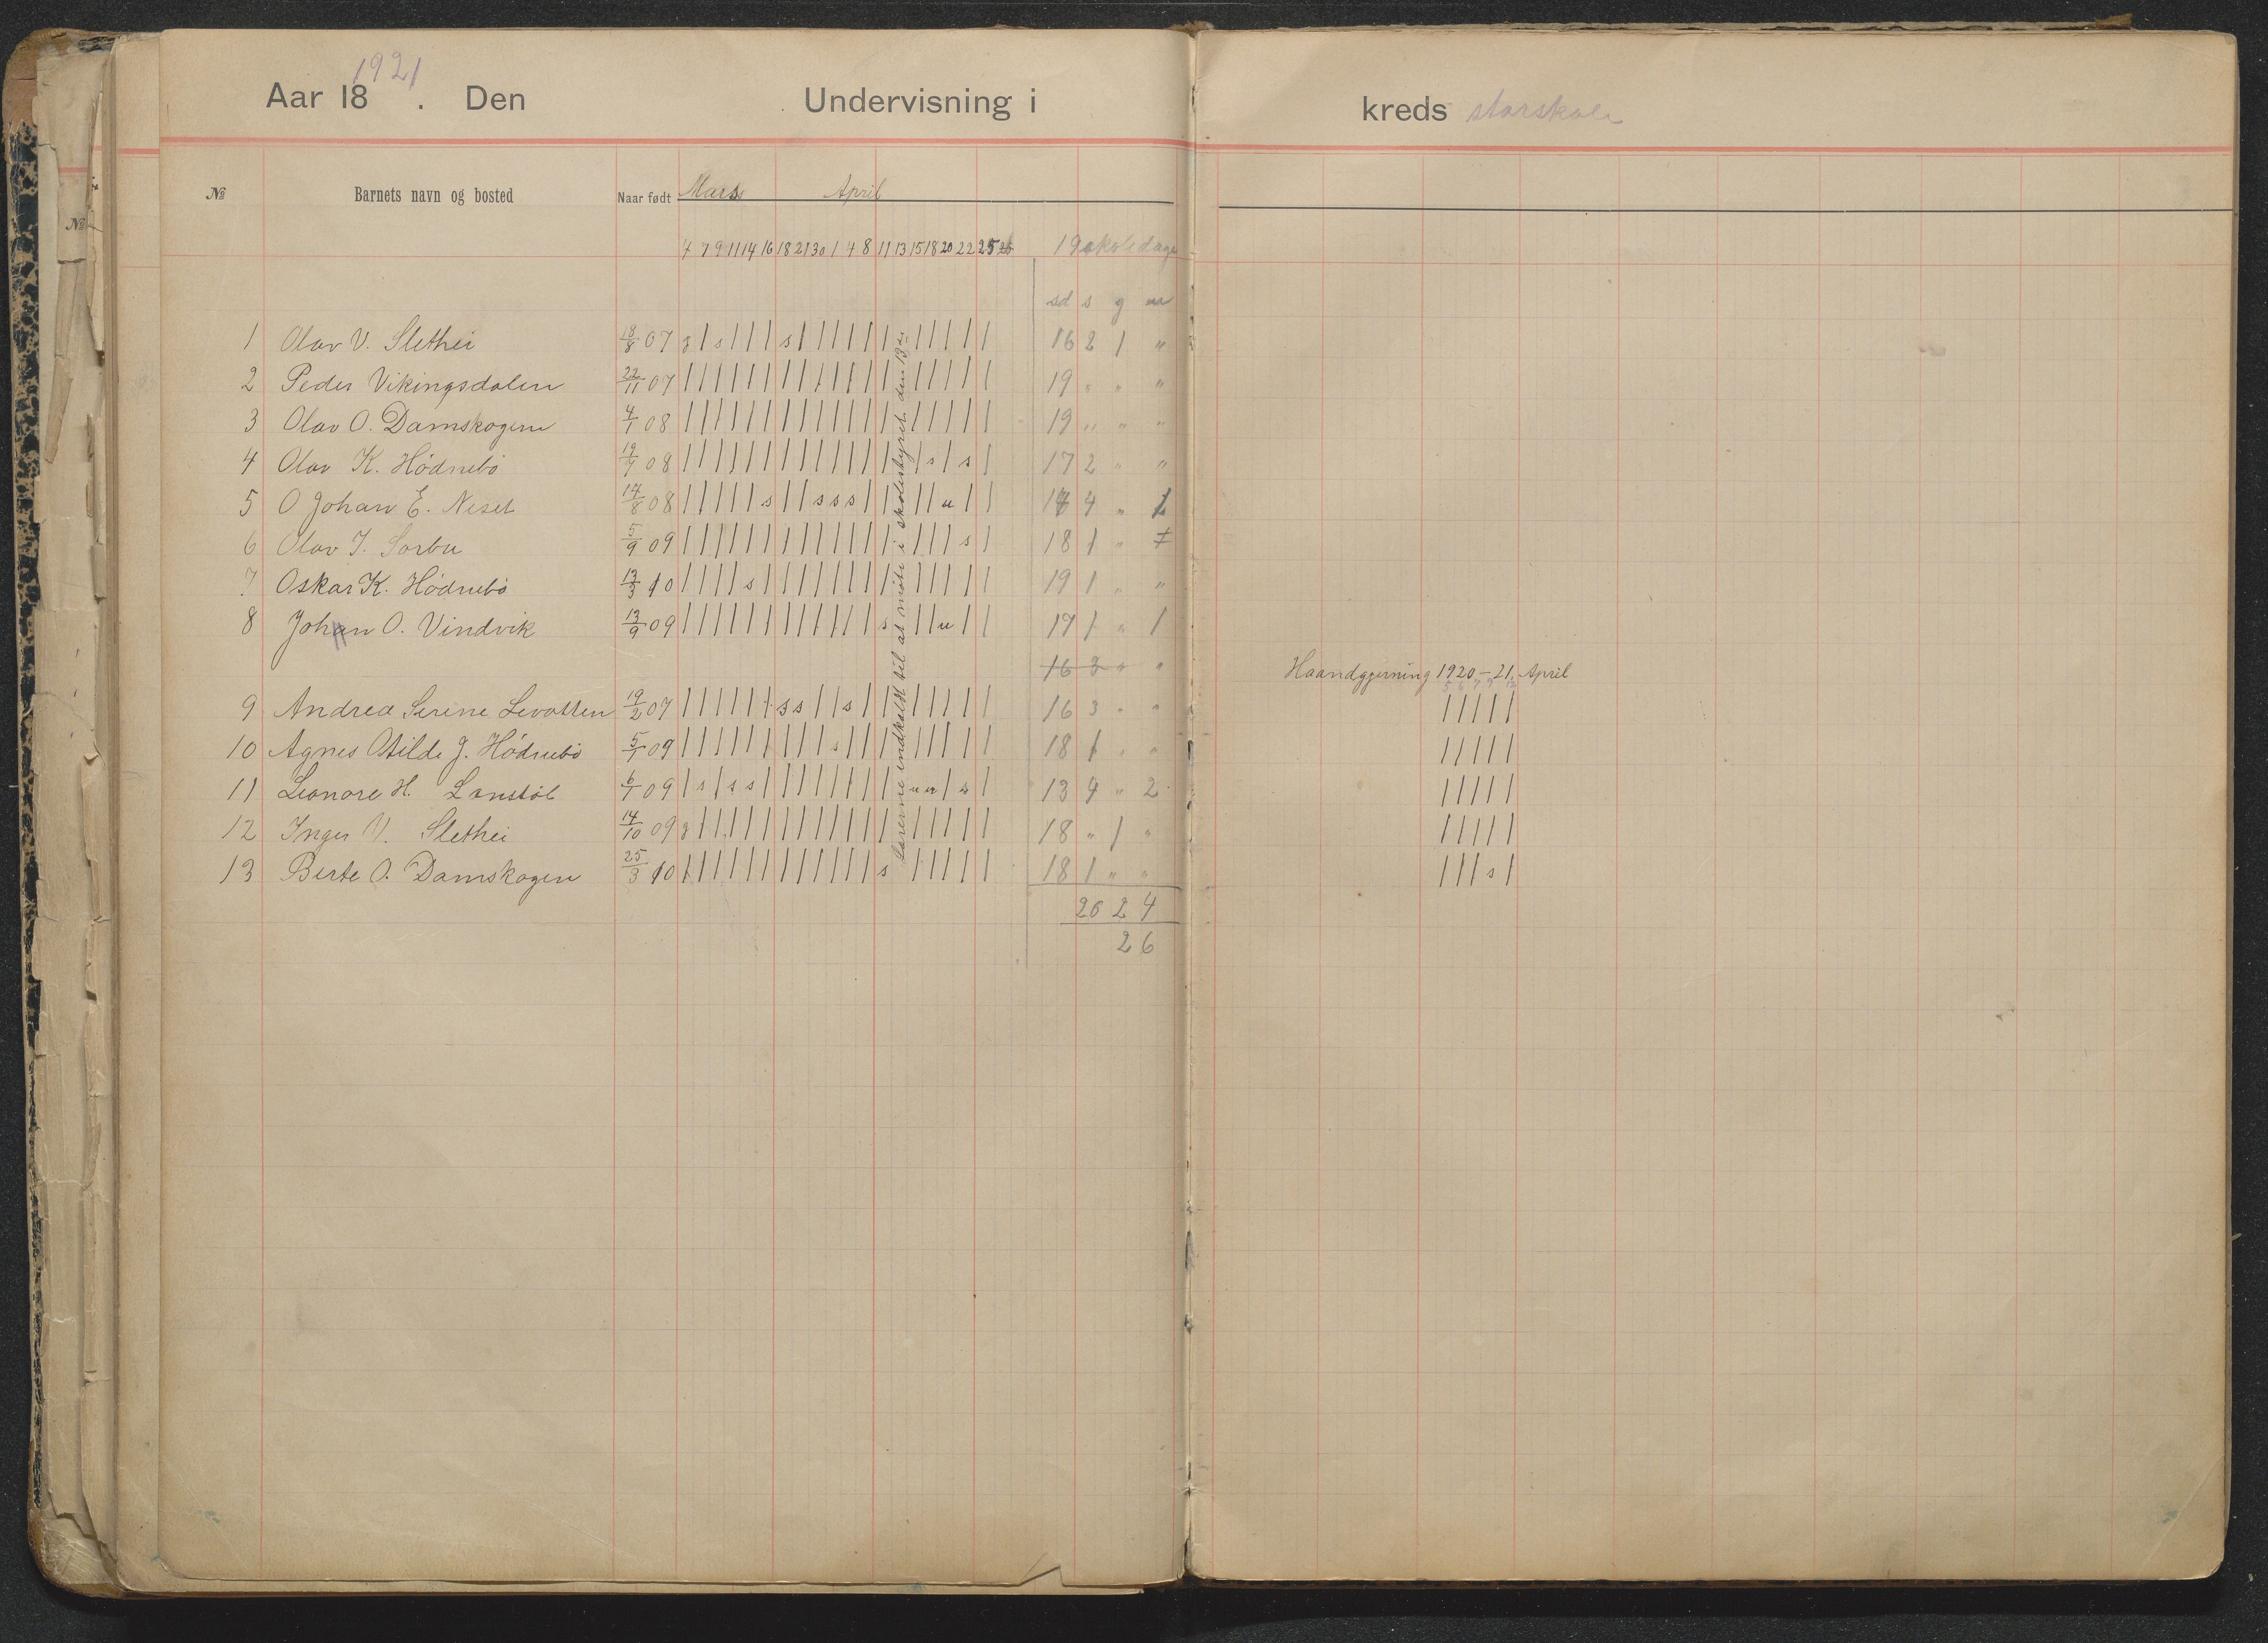 Aar 18 1921. Den Undervisning i kreds storskole
№ Barnets navn og bosted Naar født Mars April
№
4 7 9 11 14 16 18 21 30 1 4 8 11 13 15 18 20 22 25 26 19 skoledage
sd s g u
1 Olav V. Slethei 18/8 07 g | s | | | s | | | | | | | | | | | 16 2 1 "
2 Peder Vikingsdalen 22/11 07 | | | | | | | | | | | | | | | | | | 19 " " "
3 Olav O. Damskogen 4/1 08 | | | | | | | | | | | | | | | | | | 19 " " "
4 Olav K. Hödnebö 08 | | | | | | | | | | | | | | s | s | 17 2 " "
5 O Johan E. Neset 14/8 08 | | | | | s | | s s s | | | | u | | 4 "
6 Olav J. Sorbu 5/9 09 | | | | | | | | | | | | | | | | s | 18 1 "
7 Oskar K. Hödnebö 13/3 10 | | | | s | | | | | | | | | | | | | 19 1 " "
8 Johan O. Vindvik 13/9 09 | | | | | | | | | | | | s | | u | | 17 1 " 1
16 3 " "
9 Andrea Serine Levatten 19/2 07 | | | | | | s s | | s | | | | | | | 16 3 " "
10 Agnes Otilde J. Hödnebö 5/1 09 | | | | | | | | | s | | | | | | | | 18 1 " "
11 Leonore H. Lanstöl 6/1 09 | s | s s | | | | | | | | u u | s | 13 4 " 2
12 Inger V. Slethei 14/10 09 g | | | | | | | | | | | | | | | | | 18 " 1 "
13 Berte O. Damskogen 25/3 10 | | | | | | | | | | | | s | | | | | 18 1 " "
20 2 4
26
Lærerne indkaldt til at møte i skolestyret den 13de
Haandgjerning 1920-21. April
5 6 7 9 12
| | | | |
| | | | |
| | | | |
| | | | |
| | | s |